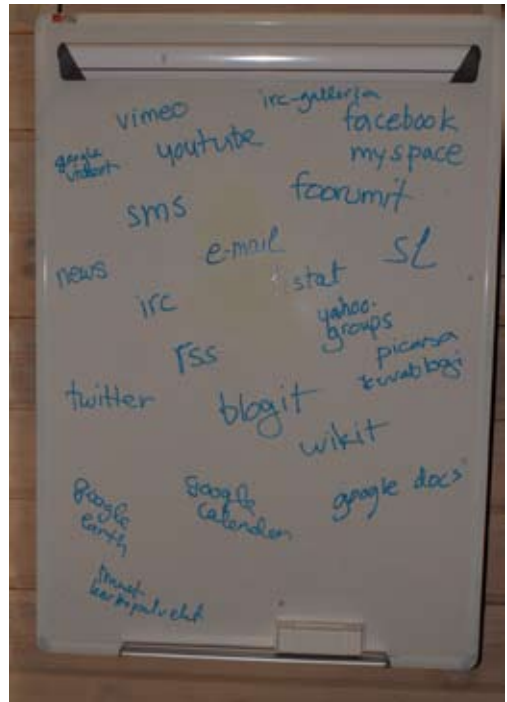 irc-galleria
vimeo
facebook
google
youtube
myspace
foorumit
sms
e-mail
SL
news
stat
irc
yahoo-
groups
rss
picassa
kuvablogi
twitter
blogit
wikit
google
earth
google
calendar
google docs
karttapalvelut